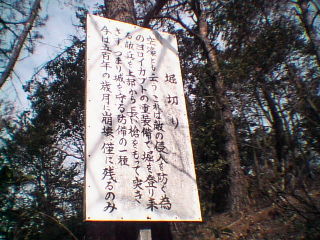 堀切り
空濠とも云うこれは敵の侵入を防ぐ為
のヨロイカブトの重装備で堀を登り来
る敵武士を上部から長い槍をもって突き
さすつまり城を守る防備の一種
今は五百年の歳月に崩壊僅に残るのみ